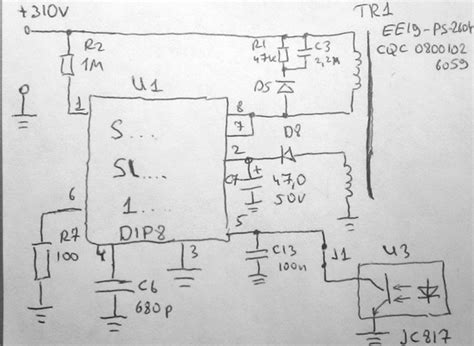 +310V
TR1
EE19-PS-260t
CQC 0800102
6059
R2
1M
R1
47K
C3
2,2n
D5
U1
1
8
7
S....
D8
2
SL...
C7
+
47,0
50V
1....
6
5
DIP8
R7
100
4
3
C13
100n
J1
U3
C6
680p
JC817